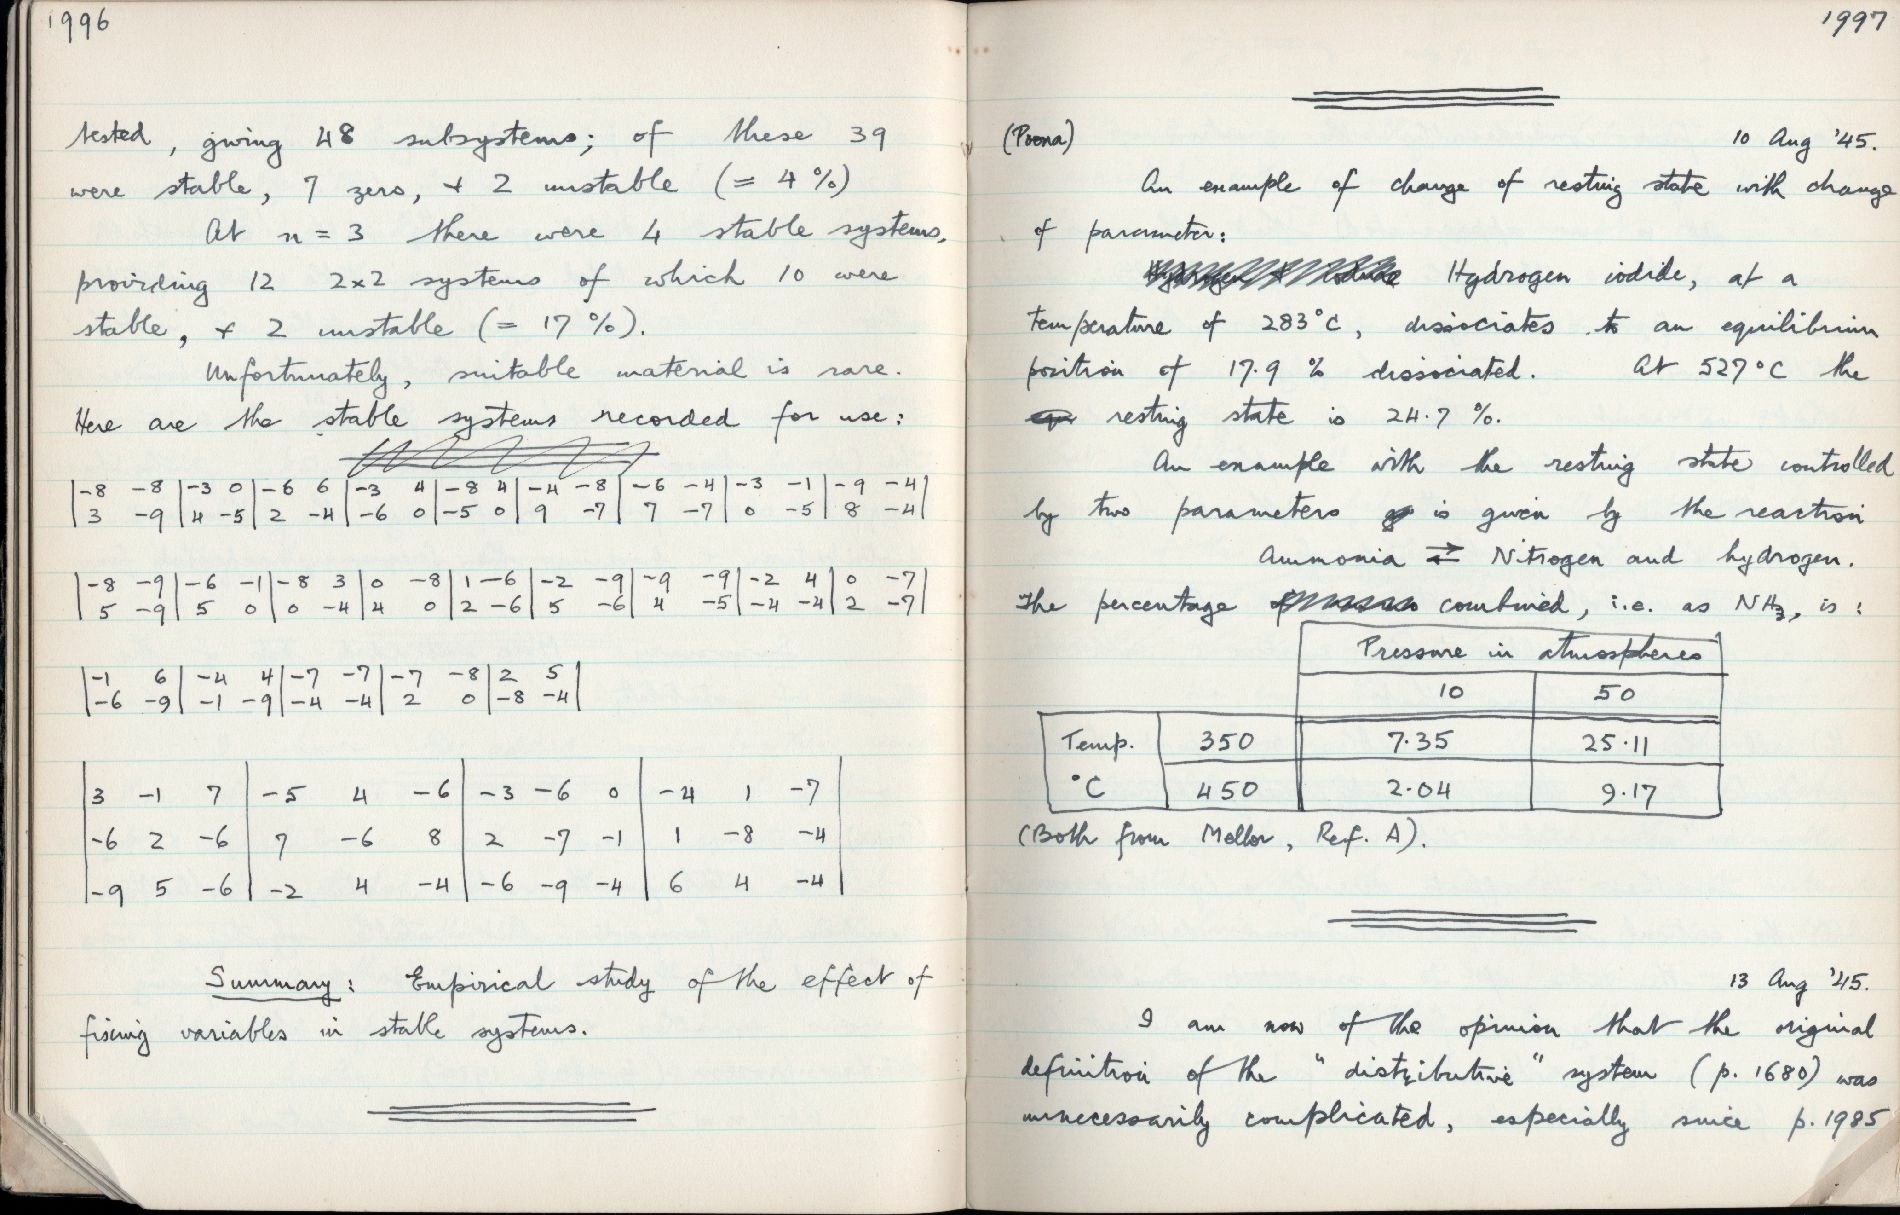 1996
tested, giving 48 subsystems; of these 39
were stable, 7 zero, + 2 unstable (= 4%)
At n = 3 there were 4 stable systems,
providing 12 2×2 systems of which 10 were
stable, + 2 unstable (= 17%).
Unfortunately, suitable material is rare.
Here are the stable systems recorded for use:
|-8 -8|-3 0|-6 6|-3 4|-8 4|-4 -8|-6 -4|-3 -1|-9 -4|
|3 -9|4 -5|2 -4|-6 0|-5 0|9 -7|7 -7|0 -5|8 -4|
|-8 -9|-6 -1|-8 3|0 -8|1 -6|-2 -9|-9 -9|-2 4|0 -7|
|5 -9|5 0|0 -4|4 0|2 -6|5 -6|4 -5|-4 -4|2 -7|
|-1 6|-4 4|-7 -7|-7 -8|2 5|
|-6 -9|-1 -9|-4 -4|2 0|-8 -4|
|3 -1 7|-5 4 -6|-3 -6 0|-4 1 -7|
|-6 2 -6|7 -6 8|2 -7 -1|1 -8 -4|
|-9 5 -6|-2 4 -4|-6 -9 -4|6 4 -4|
Summary: Empirical study of the effect of
fixing variables in stable systems.
1997
(Poona) 10 Aug '45.
An example of change of resting state with change
of parameter:
Hydrogen iodide, at a
temperature of 283°C, dissociates to an equilibrium
position of 17.9 % dissociated. At 527°C the
resting state is 24.7 %.
An example with the resting state controlled
by two parameters is given by the reaction
Ammonia ⇌ Nitrogen and hydrogen.
The percentage combined, i.e. as NH3, is:
Pressure in atmospheres
10 50
Temp. 350 7.35 25.11
°C 450 2.04 9.17
(Both from Mellor, Ref. A).
13 Aug '45.
I am now of the opinion that the original
definition of the "distributive" system (p. 1680) was
unnecessarily complicated, especially since p. 1985